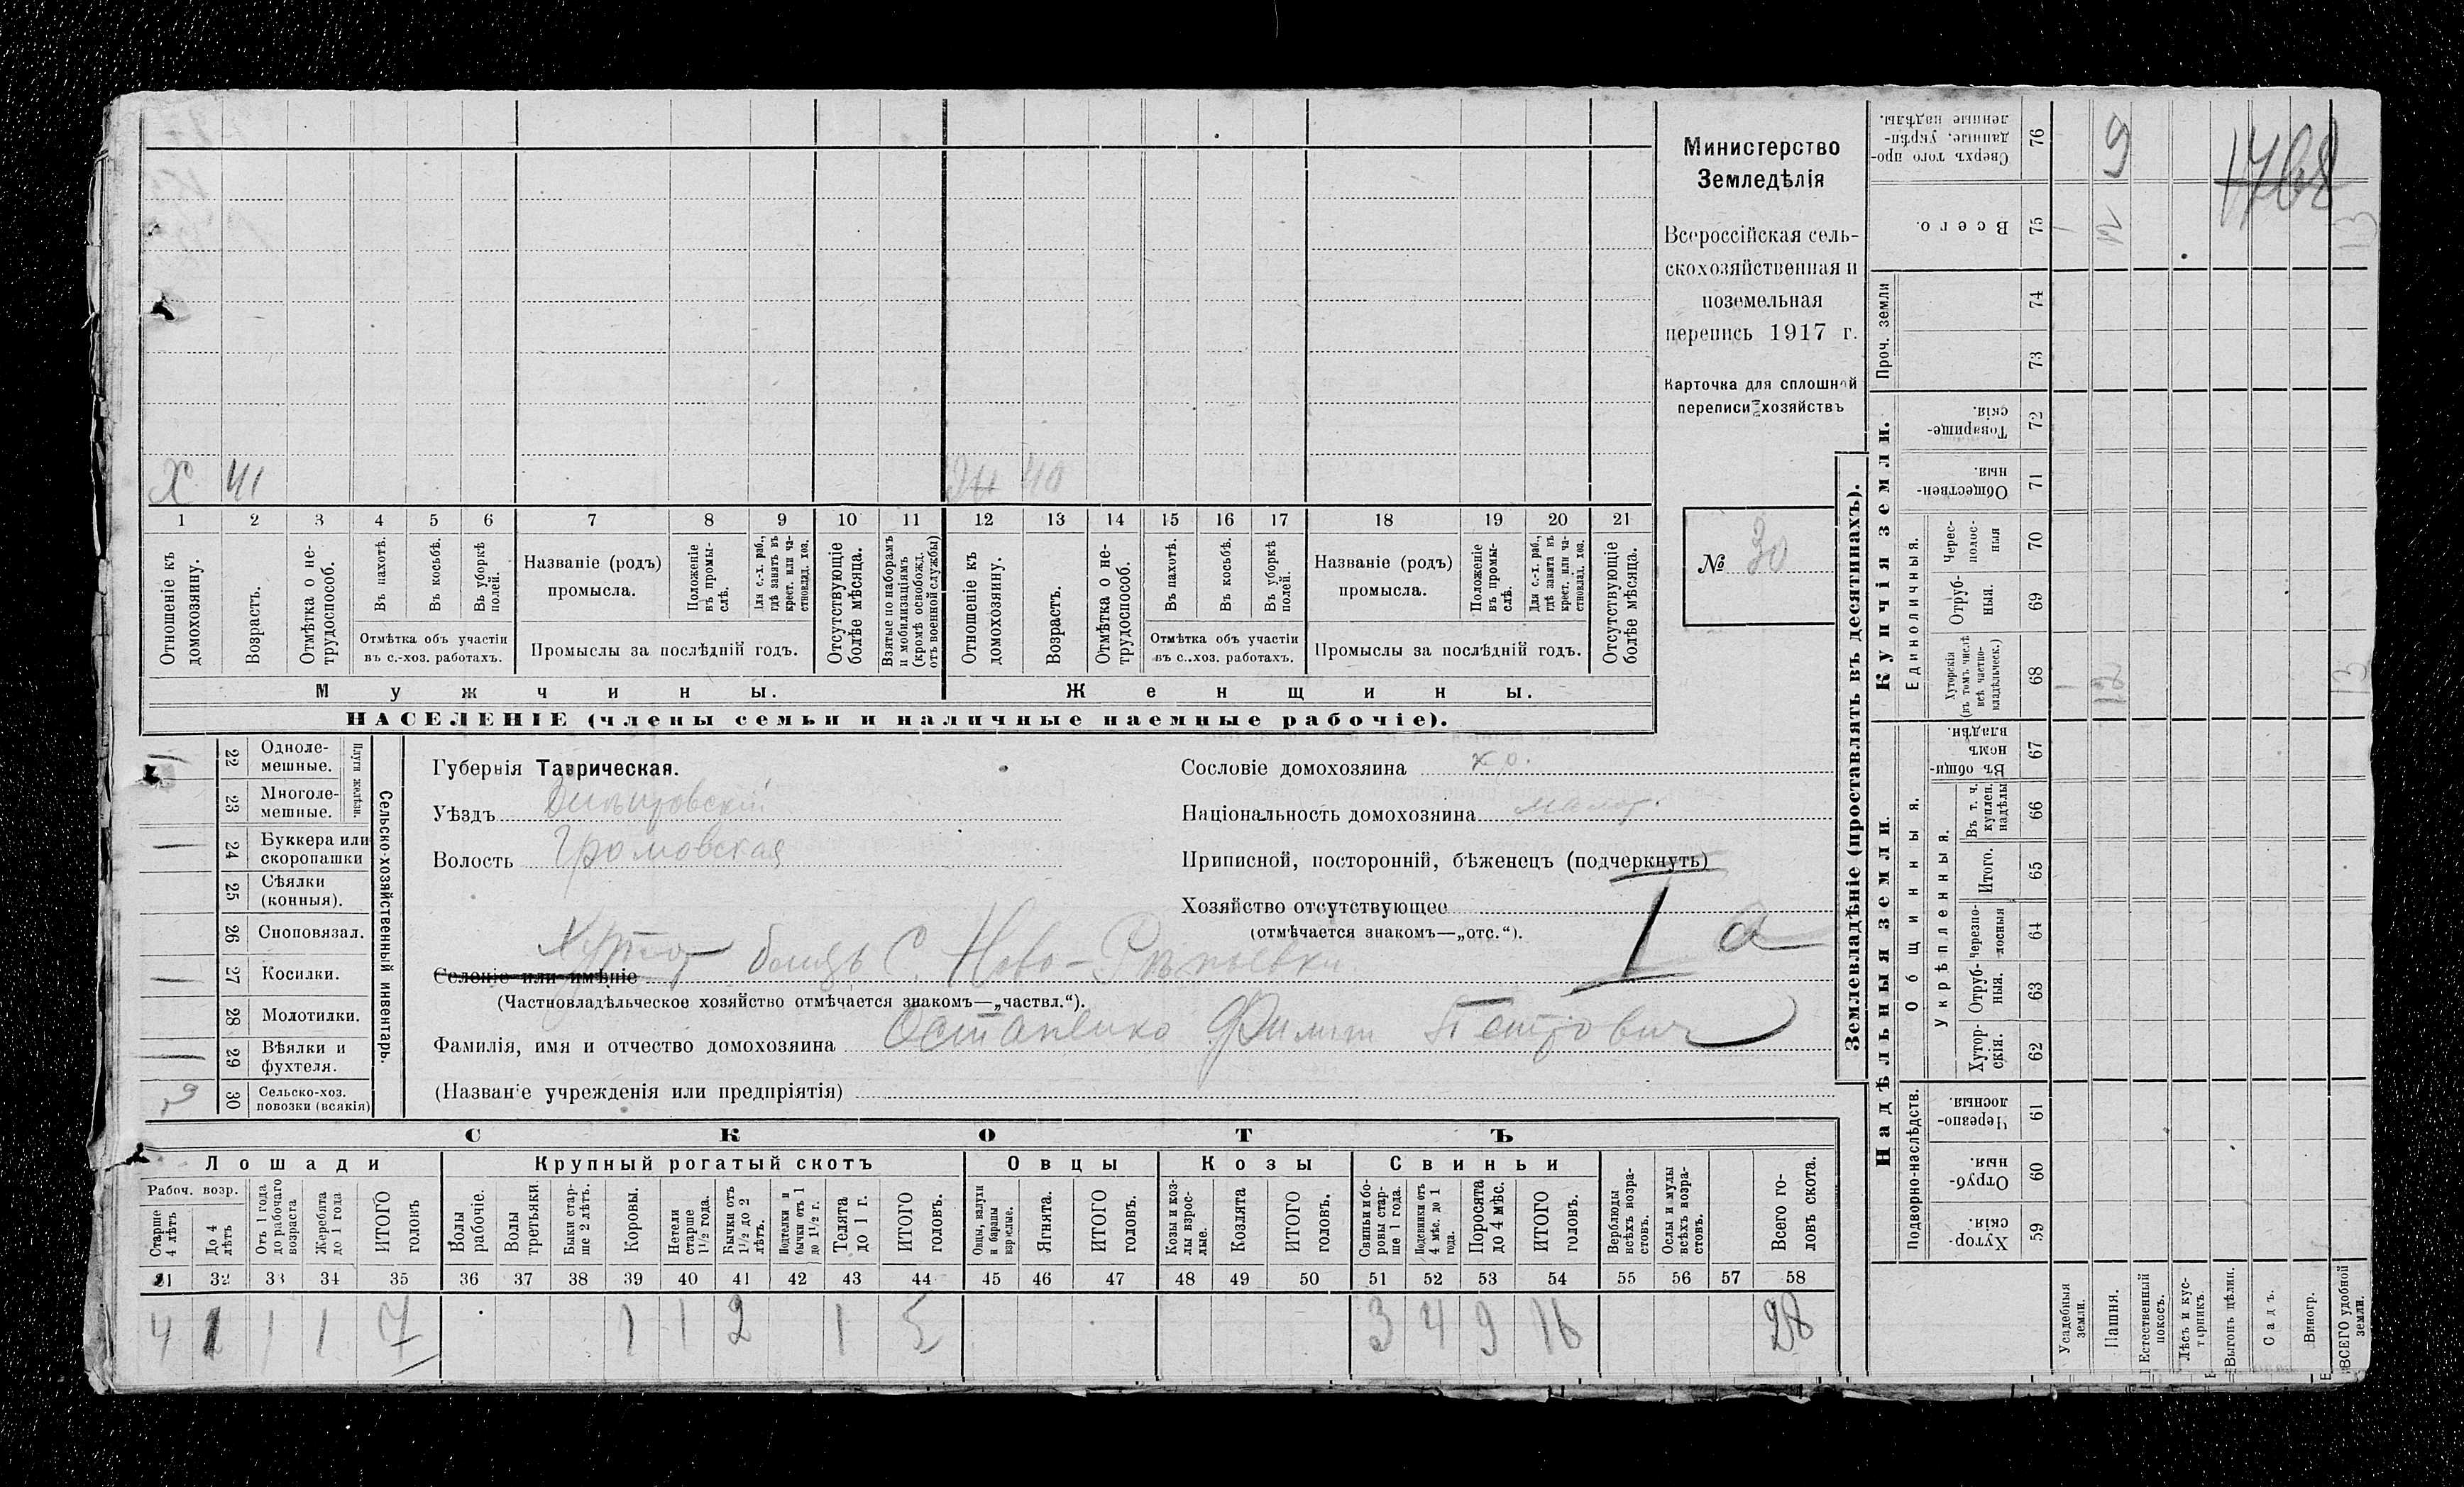 Х 41 Жена 40
1 2 3 4 5 6 7 8 9 10 11 12 13 14 15 16 17 18 19 20 21
Отношеніе къ домохозяину.
Возрастъ.
Отмѣтка о нетрудоспособ.
Въ пахотѣ.
Въ косьбѣ.
Въ уборкѣ полей.
Отмѣтка объ участіи
въ с.-хоз. работахъ.
Названіе (родъ)
промысла.
Положеніе въ промыслѣ.
Для с.-х. раб., гдѣ занятъ въ крест. или частновлад. хоз.
Промыслы за послѣдній годъ.
Отсутствующіе болѣе мѣсяца.
Взятые по наборамъ и мобилизаціямъ (кромѣ освобожд. отъ военной службы)
Отношеніе къ домохозяину.
Возрастъ.
Отмѣтка о нетрудоспособ.
Въ пахотѣ.
Въ косьбѣ.
Въ уборкѣ полей.
Отмѣтка объ участіи
въ с.-хоз. работахъ.
Названіе (родъ)
промысла.
Положеніе въ промыслѣ.
Для с.-х. раб., гдѣ занята въ крест. или частновлад. хоз.
Промыслы за послѣдній годъ.
Отсутствующіе болѣе мѣсяца.
Мужчины. Женщины.
НАСЕЛЕНІЕ (члены семьи и наличные наемные рабочіе).
Министерство
Земледѣлія
Всероссійская сель-
скохозяйственная и
поземельная
перепись 1917 г.
Карточка для сплошной
переписи хозяйствъ
№ 30
Сельско-хозяйственный инвентарь.
Плуги желѣзн.
22 Одноле-
мешные.
23 Многоле-
мешные.
24 Буккера или
скоропашки
25 Сѣялки
(конныя).
26 Сноповязал.
27 Косилки.
28 Молотилки.
29 Вѣялки и
фухтеля.
30 Сельско-хоз.
повозки (всякія)
Губернія Таврическая.
Уѣздъ Днѣпровскій
Волость Громовская
Хуторъ близь С. Ново-
Селеніе или имѣніе
(Частновладѣльческое хозяйство отмѣчается знакомъ—„частвл.“).
Фамилія, имя и отчество домохозяина Остапенко Филипп Петрович
(Названіе учрежденія или предпріятія)
Сословіе домохозяина кр.
Національность домохозяина малор.
Приписной, посторонній, бѣженецъ (подчеркнуть)
Хозяйство отсутствующее
(отмѣчается знакомъ—„отс.“).
I а
СКОТЪ
Лошади Крупный рогатый скотъ Овцы Козы Свиньи
Рабоч. возр.
Старше 4 лѣтъ
До 4 лѣтъ
Отъ 1 года до рабочаго возраста
Жеребята до 1 года
ИТОГО головъ
Волы рабочіе.
Волы третьяки
Быки старше 2 лѣтъ.
Коровы.
Нетели старше 1½ года.
Бычки отъ 1½ до 2 лѣтъ.
Подтелки и бычки отъ 1 до 1½ г.
Телята до 1 г.
ИТОГО головъ.
Овцы, валухи и бараны взрослые.
Ягнята.
ИТОГО головъ.
Козы и козлы взрослые.
Козлята
ИТОГО головъ.
Свиньи и боровы старше 1 года.
Подсвинки отъ 4 мѣс. до 1 года.
Поросята до 4 мѣс.
ИТОГО головъ.
Верблюды всѣхъ возрастовъ.
Ослы и мулы всѣхъ возрастовъ.
Всего головъ скота.
31 32 33 34 35 36 37 38 39 40 41 42 43 44 45 46 47 48 49 50 51 52 53 54 55 56 57 58
4 1 1 1 7 1 1 2 1 5 3 4 9 16 28
Землевладѣніе (проставлять въ десятинахъ).
Купчія земли.
Надѣльныя земли
Сверхъ того проданные, укрѣпленные надѣлы. 76 9
Всего. 75
1768
13
Проч. земли
74
73
Товарищескія. 72
Общественныя. 71
Единоличныя.
Чересполосныя 70
Отрубныя. 69
Хуторскія (въ томъ числѣ всѣ частновладѣльческ.) 68 1 12 13
Общинныя.
Въ общинномъ владѣн. 67
Укрѣпленныя.
Въ т. ч. куплен. надѣлы 66
Итого. 65
Черезполосныя 64
Отрубныя. 63
Хуторскія. 62
Подворно-наслѣдств.
Черезполосныя. 61
Отрубныя. 60
Хуторскія. 59
Усадебныя земли.
Пашня.
Естественный покосъ.
Лѣсъ и кустарникъ.
Выгонъ цѣлин.
Садъ.
Виногр.
ВСЕГО удобной земли.